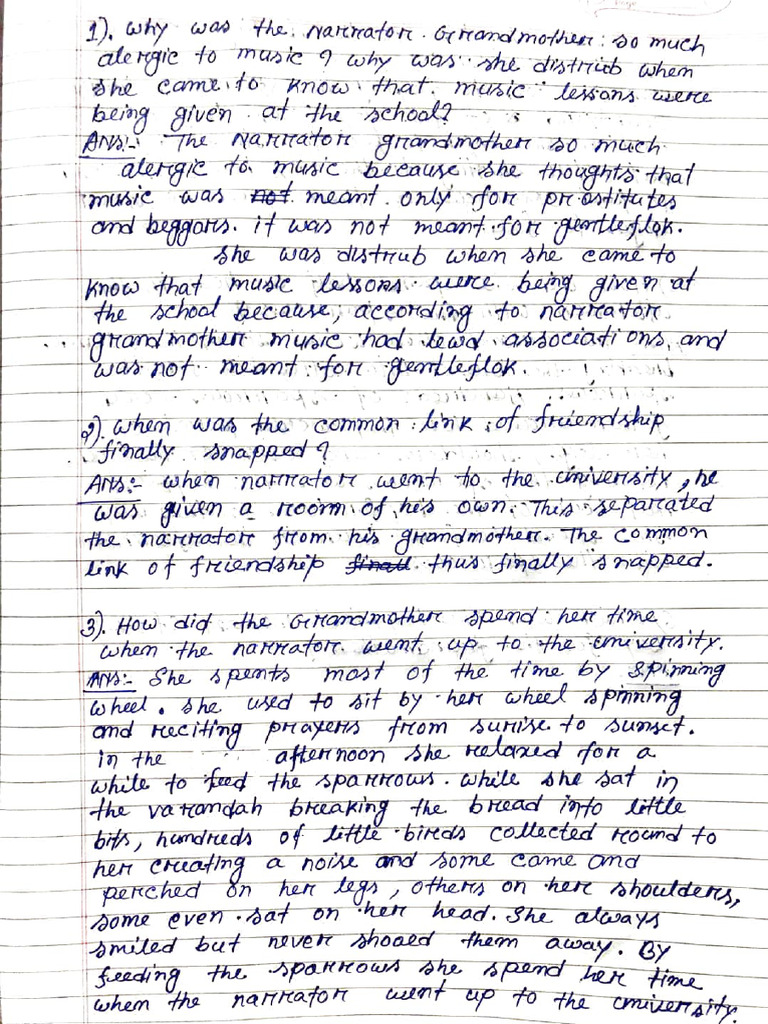 1). Why was the narrator Grandmother so much
alergic to music? why was she distrub when
she came to know that music lessons were
being given at the school?
Ans:- The Narrator grandmother so much
alergic to music because she thoughts that
music was not meant only for prostitutes
and beggars. it was not meant for gentleflok.
she was distrub when she came to
know that music lessons were being given at
the school because, according to narrator
grandmother music had lewd associations and
was not meant for gentleflok.
2). when was the common link of friendship
finally snapped?
Ans:- when narrator went to the university, he
was given a room of his own. This separated
the narrator from his grandmother. The common
link of friendship finall thus finally snapped.
3). How did the Grandmother spend her time
when the narrator went up to the university.
Ans:- She spents most of the time by spinning
wheel. she used to sit by her wheel spinning
and reciting prayers from sunrise to sunset.
in the afternoon she relaxed for a
while to feed the sparrows. while she sat in
the varandah breaking the bread into little
bits, hundreds of little birds collected round to
her creating a noise and some came and
perched on her legs, others on her shoulders,
some even sat on her head. She always
smiled but never shooed them away. By
feeding the sparrows she spend her time
when the narrator went up to the university.